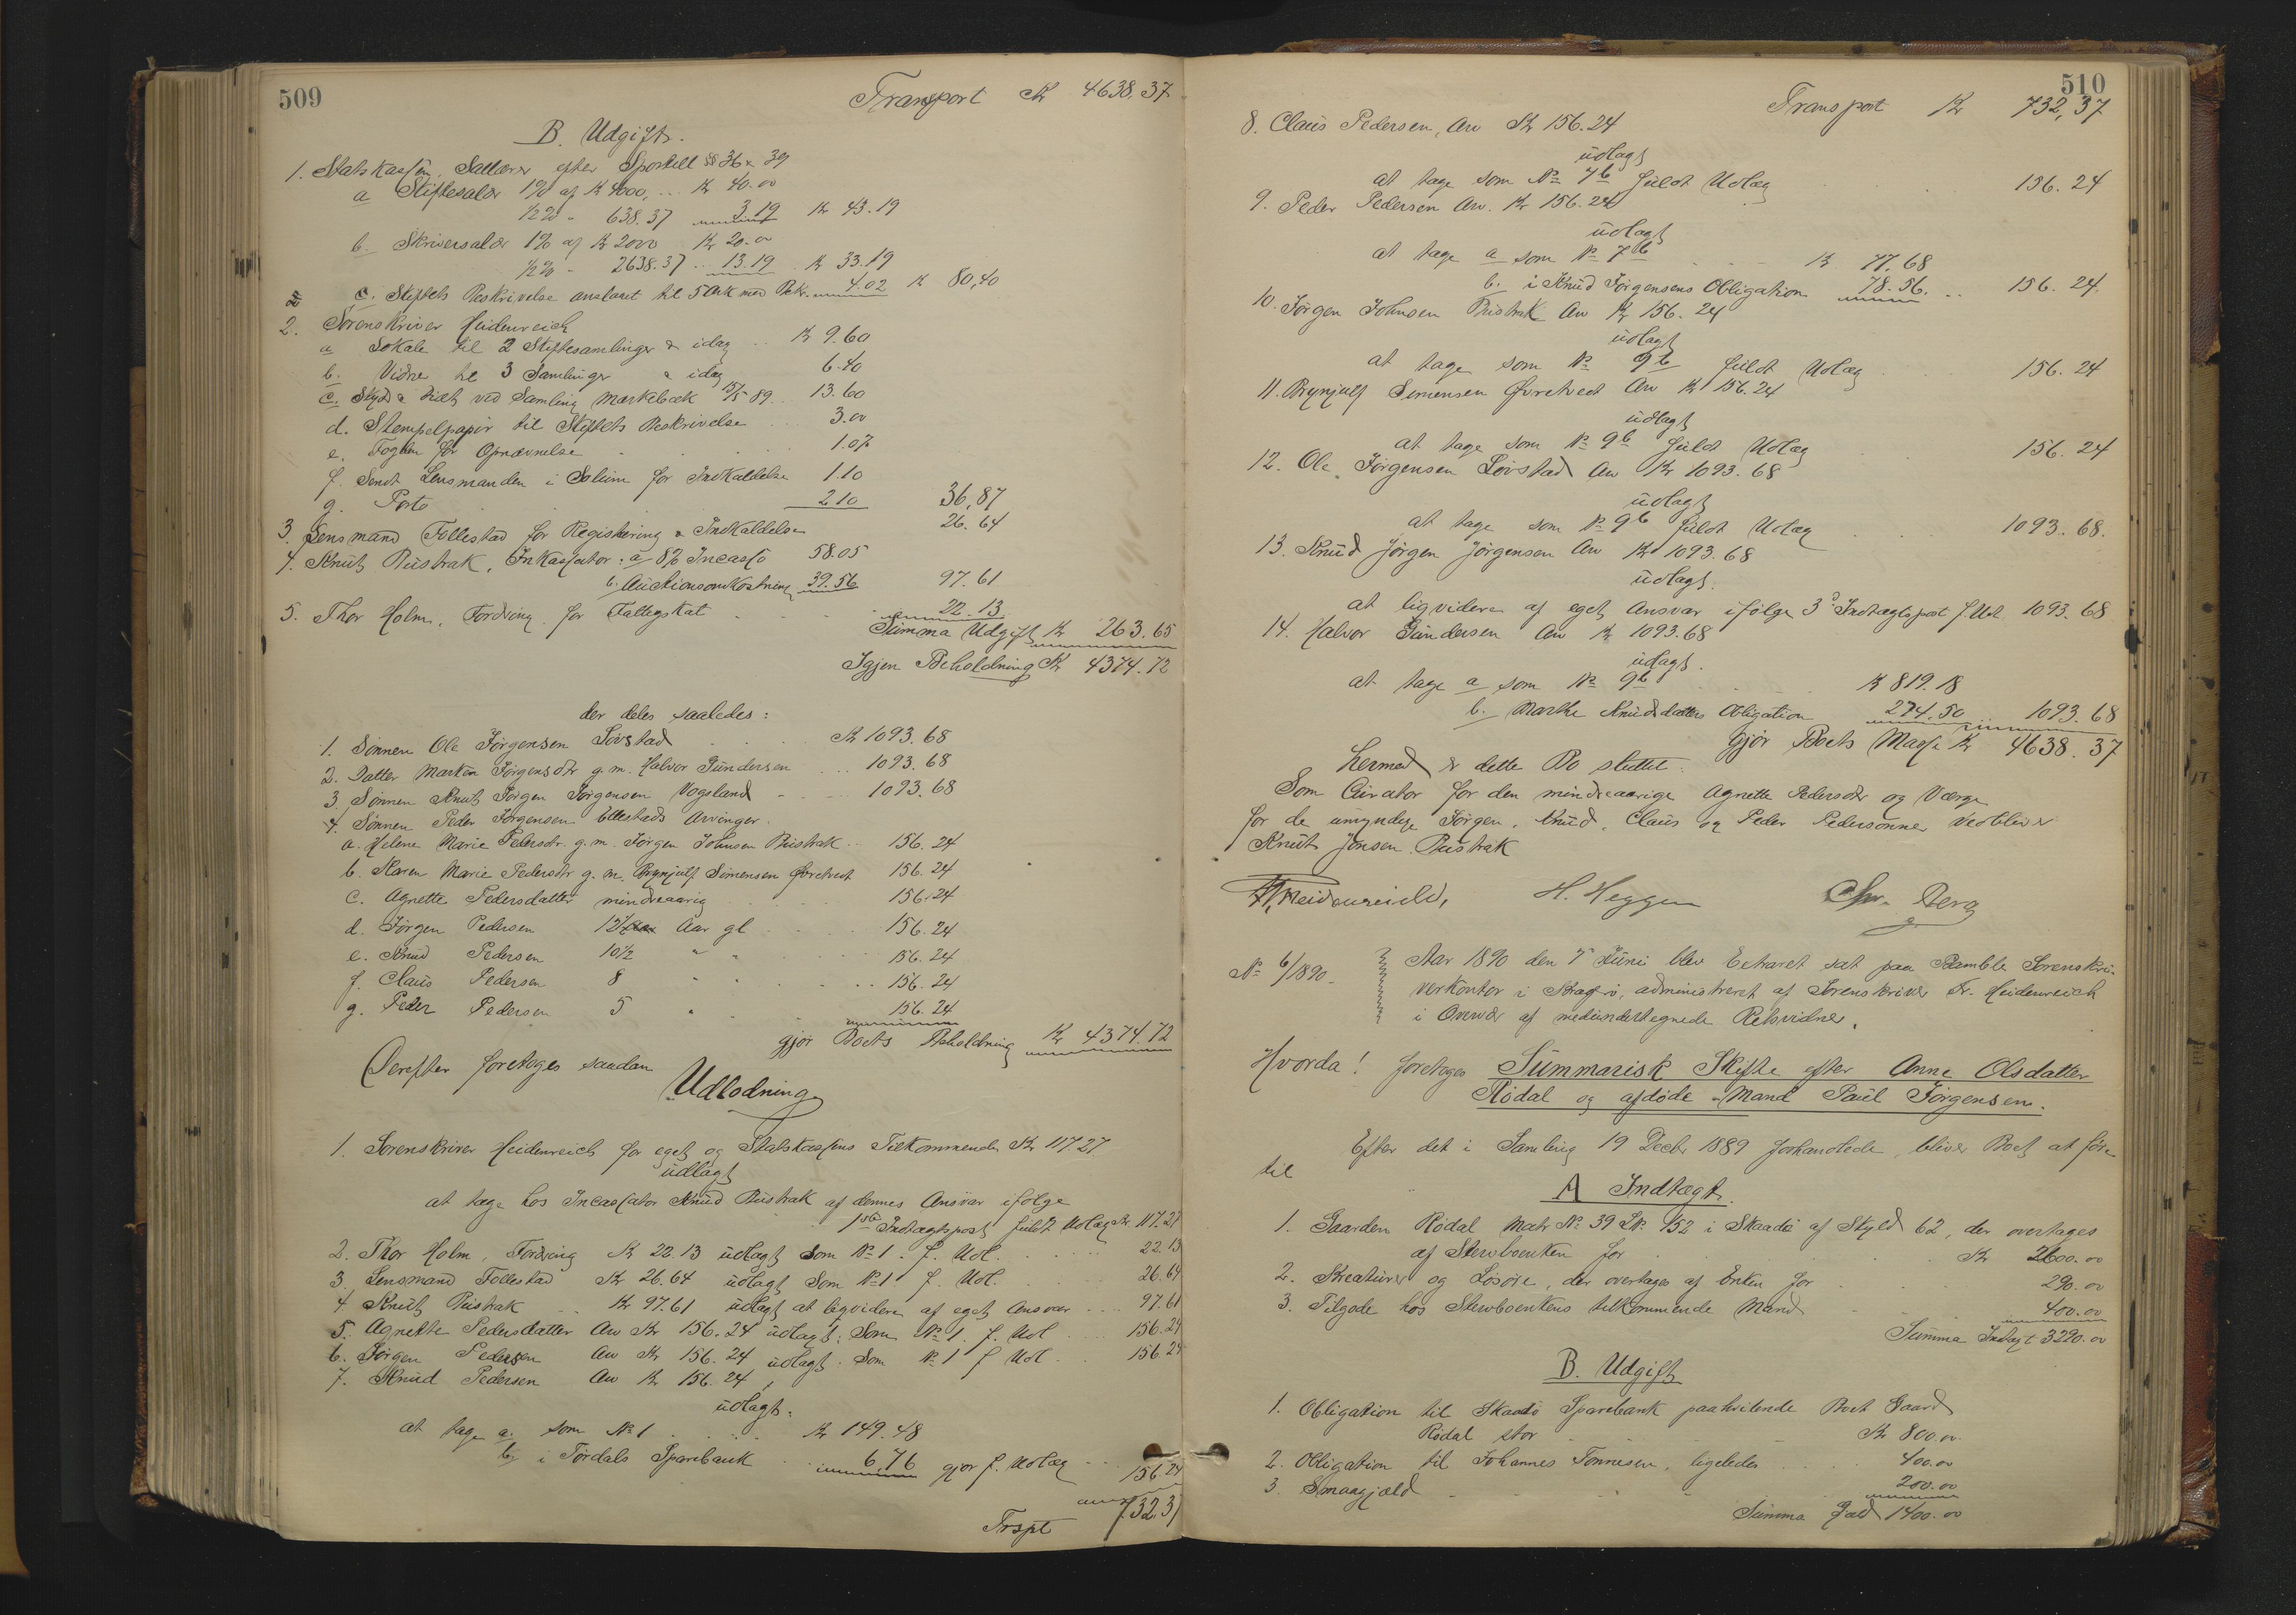 509
Transport Kr 4638.37
B. Udgift.
1. Statskassen, Sallærer efter Sportell §§ 36 & 39
a Skiftesalær 1% af Kr 4000,... Kr 40.00
½% " 638.37 3.19 Kr 43.19
b. Skriversalær 1% af Kr 2000 Kr 20.00
½% " 2638.37 .. 13.19 . Kr 33.19
c. Skiftets Beskrivelse anslaaet til 5 Ark med Bekr. 4.02 Kr 80,40
2. Sorenskriver Heidenreich
a Lokale til 2 Skiftesamlinger & idag .. Kr 9.60
b. Vidner til 3 Samlinger & idag 6.40
c. Skyds & Diæt ved Samling Markebæk 15/5 89.. 13.60
d. Stempelpapir til Skiftets Beskrivelse .. 3.00
e. Fogden for Opnævnelse 1.07
f. Sendt Lensmanden i Solum for Indkaldelse 1.10
g. Porto 2.10 36,87
3. Lensmand Follestad for Registrering & Indkaldelse 26.64
4. Knut Rustrak, Inkassator: a 8% Incasso 58.05
b. Auctionsomkostning 39.56 97.61
5. Thor Holm, Fordring for Fattigskat 22.13
Summa Udgift Kr 263.65
Igjen Beholdning Kr 4374.72
der deles saaledes:
1. Sønnen Ole Jørgensen Løvstad Kr 1093.68
2. Datter Marken Jørgensdtr g.m. Halvor Gundersen 1093.68
3. Sønnen Knut Jørgen Jørgensen Vogsland 1093.68
4. Sønnen Peder Jørgensen Ellestads Arvinger.
a. Helene Marie Pedersdr. g.m. Jørgen Johnsen Rustrak .. 156.24
b. Karen Marie Pedersdtr g.m. Brynjulf Simensen Øvretvedt 156.24
c. Agnette Pedersdatter mindreaarig 156.24
d. Jørgen Pedersen 12 Aar gl 156.24
e. Knud Pedersen 10½ " " 156.24
f. Claus Pedersen 8 " 156.24
g. Peder Pedersen 5 " 156.24
gjør Boets Beholdning Kr 4374.72
Derefter foretoges saadan
Udlodning
1. Sorenskriver Heidenreich for eget og Statskassens Tilkommende Kr 117.27
udlagt
at tage hos Incassator Knud Rustrak af dennes Ansvar ifølge
1ste Indtægtspost fuldt Udlæg Kr 117.27
2. Thor Holm, Fordring Kr 22.13 udlagt som No 1. f. Udl. 22.13
3. Lensmand Follestad Kr 26.64 udlagt Som No 1 f. Udl. 26.64
4 Knut Rustrak .. Kr 97.61 udlagt at liqvidere af eget Ansvar .... 97.61
5. Agnette Pedersdatter Arv Kr 156.24 udlagt. Som No 1. f. Udl 156.24
6. Jørgen Pedersen Arv Kr 156.24 udlagt. Som No 1 f Udl. 156.24
7. Knud Pedersen Arv Kr 156.24,
udlagt.
at tage a. som No 1 Kr 149.48
b. i Tørdals Sparebank 6,76 gjør f. Udlæg 156.24
Trspt 732.37
510
Transport Kr 732,37
8. Claus Pedersen, Arv Kr 156.24
udlagt
at tage som No 7b fuldt Udlæg 156.24
9. Peder Pedersen Arv. Kr 156.24
udlagt
at tage a som No 7b Kr 77.68
b. i Knud Jørgensens Obligation 78.56. .. 156.24.
10. Jørgen Johnsen Rustrak Arv Kr 156.24
udlagt
at tage som No 9b fuldt Udlæg 156.24
11. Brynjulf Simensen Øvretvedt Arv Kr 156.24
udlagt
at tage som No 9b fuldt Udlæg 156.24
12. Ole Jørgensen Løvstad Arv Kr 1093.68
udlagt
at tage som No 9b fuldt Udlæg 1093.68.
13. Knud Jørgen Jørgensen Arv Kr 1093.68
udlagt.
at liqvidere af eget Ansvar ifølge 3die Indtægtspost f. Udl 1093.68
14. Halvor Gundersen Arv Kr 1093.68
udlagt.
at tage a som No 9b Kr 819.18
b. Marthe Knudsdatters Obligation 274.50 .. 1093.68
Gjør Boets Masse Kr 4638.37
hermed er dette Bo sluttet.
Som Curator for den mindreaarige Agnette Pedersdtr og Værge
for de umyndige Jørgen, Knud, Claus og Peder Pederssønner vedbliver
Knut Jensen Rustrak
Fr. Heidenreich, H. Heggen Chr. Berg
No 6/1890. Aar 1890 den 7 Juni blev Extraret sat paa Bamble Sorenskri-
verkontor i Kragerø, administreret af Sorenskriver Fr. Heidenreich
i Overvær af medundertegnede Retsvidner.
Hvorda! foretoges Summarisk Skifte efter Anne Olsdatter
Rødal og afdøde Mand Paul Jørgensen.
Efter det i Samling 19 Decbr 1889 forhandlede, bliver Boet at føre
til
A Indtægt.
1. Gaarden Rødal Matr No 39 LNo 152 i Skaadø af Skyld 62, der overtages
af Stervboenken for Kr 2600.00
2. Kreaturer og Løsøre, der overtages af Enken for 290.00
3. Tilgode hos Stervboenkens tilkommende Mand 400.00
Summa Indtægt 3290.00
B. Udgift
1. Obligation til Skaadø Sparebank paahvilende Boets Gaard
Rødal stor Kr 800.00
2. Obligation til Johannes Tønnesen, ligeledes 400.00
3. Smaagjæld 200.00
Summa Gjæld 1400.00